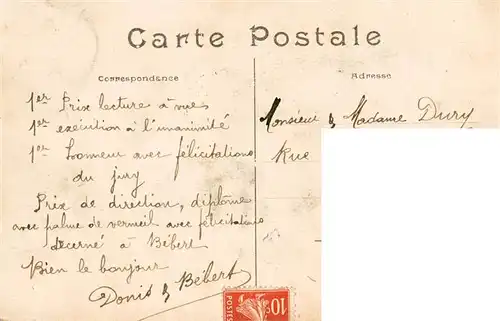 Carte Postale
Correspondance
Adresse
1er Prix lecture à vues
1er exécution à l'unanimité
1er honneur avec félicitations
du jury
Prix de direction, diplôme
avec palme de vermeil avec félicitations
décerné à Bébert
Bien le bonjour
Donis & Bébert
Monsieur & Madame Dury
Rue
10c
POSTES